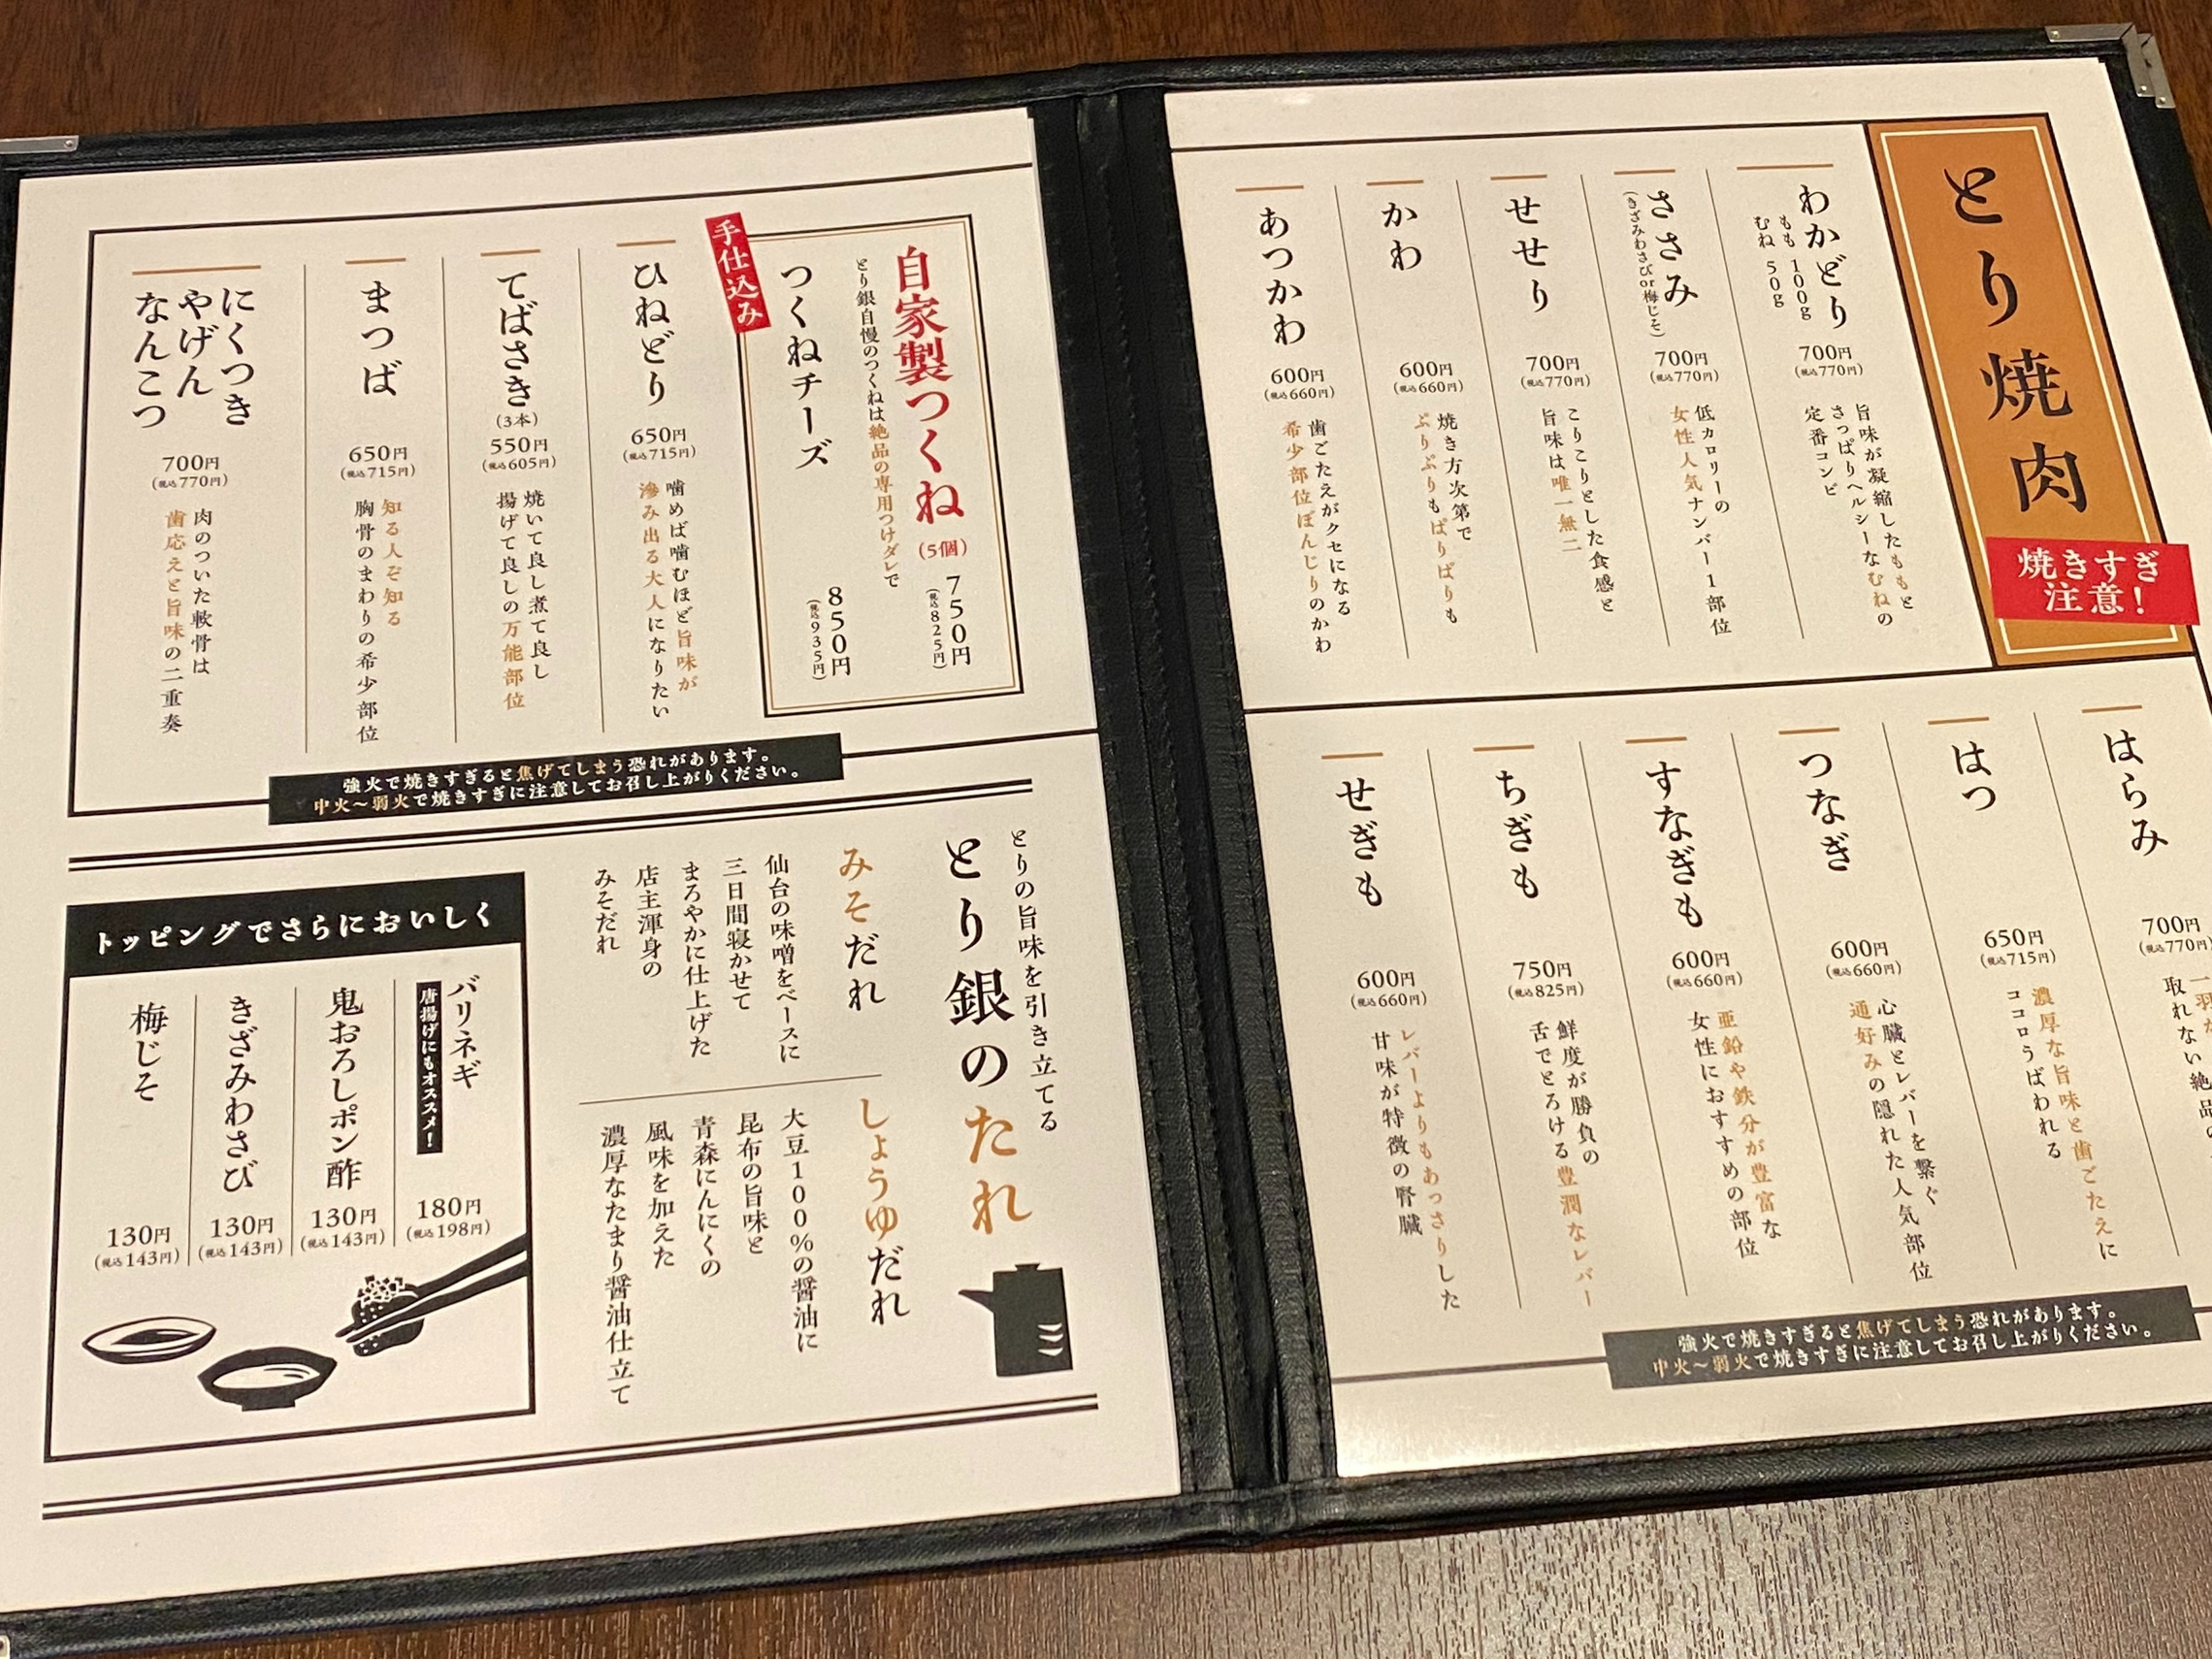 とり焼肉
焼きすぎ
注意！
わかどり
もも 100g
むね 50g
700円
(税込770円)
旨味が凝縮したももと
さっぱりヘルシーなむねの
定番コンビ
ささみ
(きざみわさびor梅じそ)
700円
(税込770円)
低カロリーの
女性人気ナンバー1部位
せせり
700円
(税込770円)
こりこりとした食感と
旨味は唯一無二
かわ
600円
(税込660円)
焼き方次第で
ぷりぷりもぱりぱりも
あつかわ
600円
(税込660円)
歯ごたえがクセになる
希少部位ぼんじりのかわ
はらみ
700円
(税込770円)
取れない絶品
はつ
650円
(税込715円)
濃厚な旨味と歯ごたえに
ココロうばわれる
つなぎ
600円
(税込660円)
心臓とレバーを繋ぐ
通好みの隠れた人気部位
すなぎも
600円
(税込660円)
亜鉛や鉄分が豊富な
女性におすすめの部位
ちぎも
750円
(税込825円)
鮮度が勝負の
舌でとろける豊潤なレバー
せぎも
600円
(税込660円)
レバーよりもあっさりした
甘味が特徴の腎臓
強火で焼きすぎると焦げてしまう恐れがあります。
中火〜弱火で焼きすぎに注意してお召し上がりください。
手仕込み
自家製つくね(5個)
750円
(税込825円)
とり銀自慢のつくねは絶品の専用つけダレで
つくねチーズ
850円
(税込935円)
ひねどり
650円
(税込715円)
噛めば噛むほど旨味が
滲み出る大人になりたい
てばさき
(3本)
550円
(税込605円)
焼いて良し煮て良し
揚げて良しの万能部位
まつば
650円
(税込715円)
知る人ぞ知る
胸骨のまわりの希少部位
にくつき
やげん
なんこつ
700円
(税込770円)
肉のついた軟骨は
歯応えと旨味の二重奏
強火で焼きすぎると焦げてしまう恐れがあります。
中火〜弱火で焼きすぎに注意してお召し上がりください。
とりの旨味を引き立てる
とり銀のたれ
みそだれ
仙台の味噌をベースに
三日間寝かせて
まろやかに仕上げた
店主渾身の
みそだれ
しょうゆだれ
大豆100％の醤油に
昆布の旨味と
青森にんにくの
風味を加えた
濃厚なたまり醤油仕立て
トッピングでさらにおいしく
バリネギ
唐揚げにもオススメ！
180円
(税込198円)
鬼おろしポン酢
130円
(税込143円)
きざみわさび
130円
(税込143円)
梅じそ
130円
(税込143円)